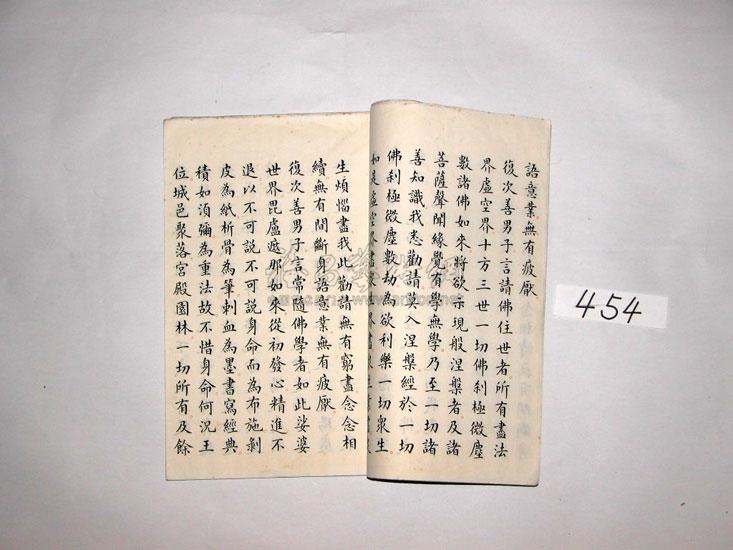 語意業無有疲厭
復次善男子言請佛住世者所有盡法
界虛空界十方三世一切佛刹極微塵
數諸佛如來將欲示現般涅槃者及諸
菩薩聲聞緣覺有學無學乃至一切諸
善知識我悉勸請莫入涅槃經於一切
佛刹極微塵數劫為欲利樂一切衆生
如是虛空界盡
生煩惱盡我此勸請無有窮盡念念相
續無有間斷身語意業無有疲厭
復次善男子言常隨佛學者如此娑婆
世界毘盧遮那如來從初發心精進不
退以不可說不可說身命而為布施剝
皮為紙析骨為筆刺血為墨書寫經典
積如須彌為重法故不惜身命何況王
位城邑聚落宮殿園林一切所有及餘
454